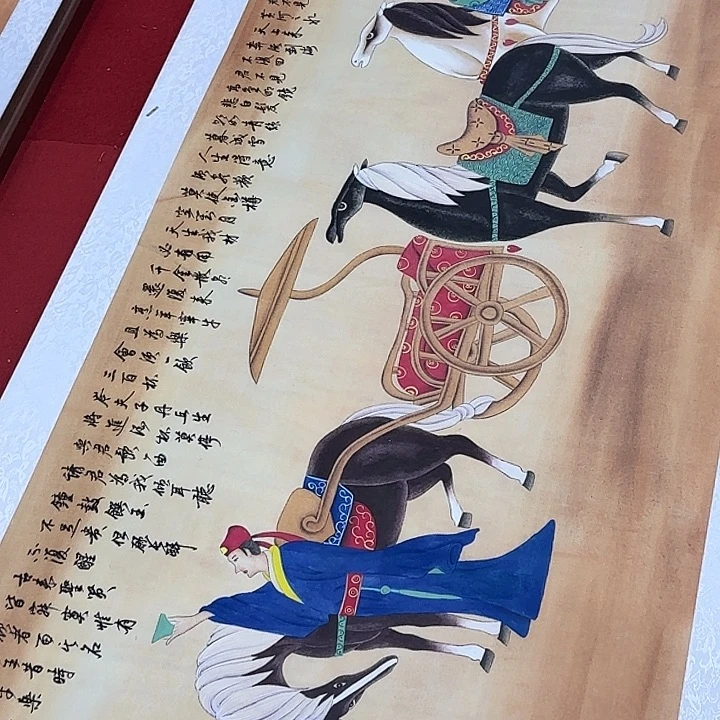 天上来
奔流到海
不復回
君不見
高堂明鏡
悲白髮
朝如青絲
暮成雪
人生得意
須盡歡
莫使金樽
空對月
天生我材
必有用
千金散盡
還復来
烹羊宰牛
且為樂
會須一飲
三百杯
岑夫子丹丘生
將進酒杯莫停
與君歌一曲
請君為我傾耳聽
鐘鼓饌玉
不足貴但願長醉
不復醒
古来聖賢
皆寂寞惟有
者留其名
王昔時
樂